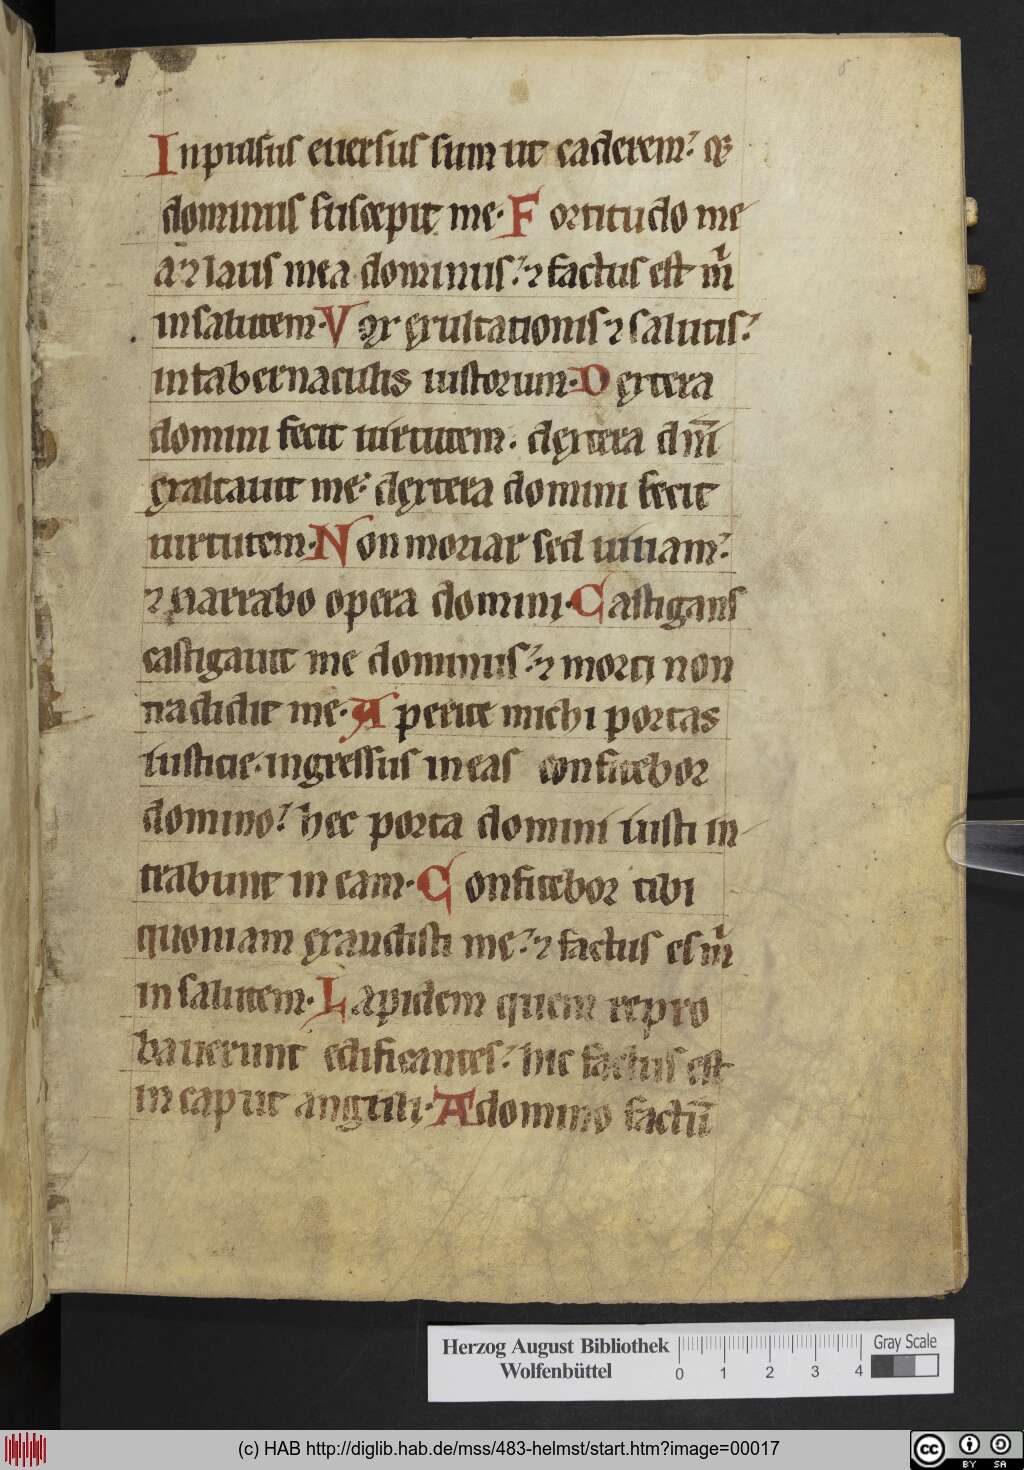 Inpulsus euersus sum ut caderem: et
dominus suscepit me. Fortitudo me
a ⁊ laus mea dominus: ⁊ factus est m̄
in salutem. Vox exultationis ⁊ salutis:
in tabernaculis iustorum. Dextera
domini fecit uirtutem. dextera dn̄i
exaltauit me: dextera domini fecit
uirtutem. Non moriar sed uiuam:
⁊ narrabo opera domini. Castigans
castigauit me dominus: ⁊ morti non
tradidit me. Aperite michi portas
iusticie. ingressus in eas confitebor
domino: hec porta domini iusti in
trabunt in eam. Confitebor tibi
quoniam exaudisti me: ⁊ factus es m̄
in salutem. Lapidem quem repro
bauerunt edificantes: hic factus est
in caput anguli. A domino factū
Herzog August Bibliothek
Wolfenbüttel
0 1 2 3 4
Gray Scale
(c) HAB http://diglib.hab.de/mss/483-helmst/start.htm?image=00017
cc BY SA